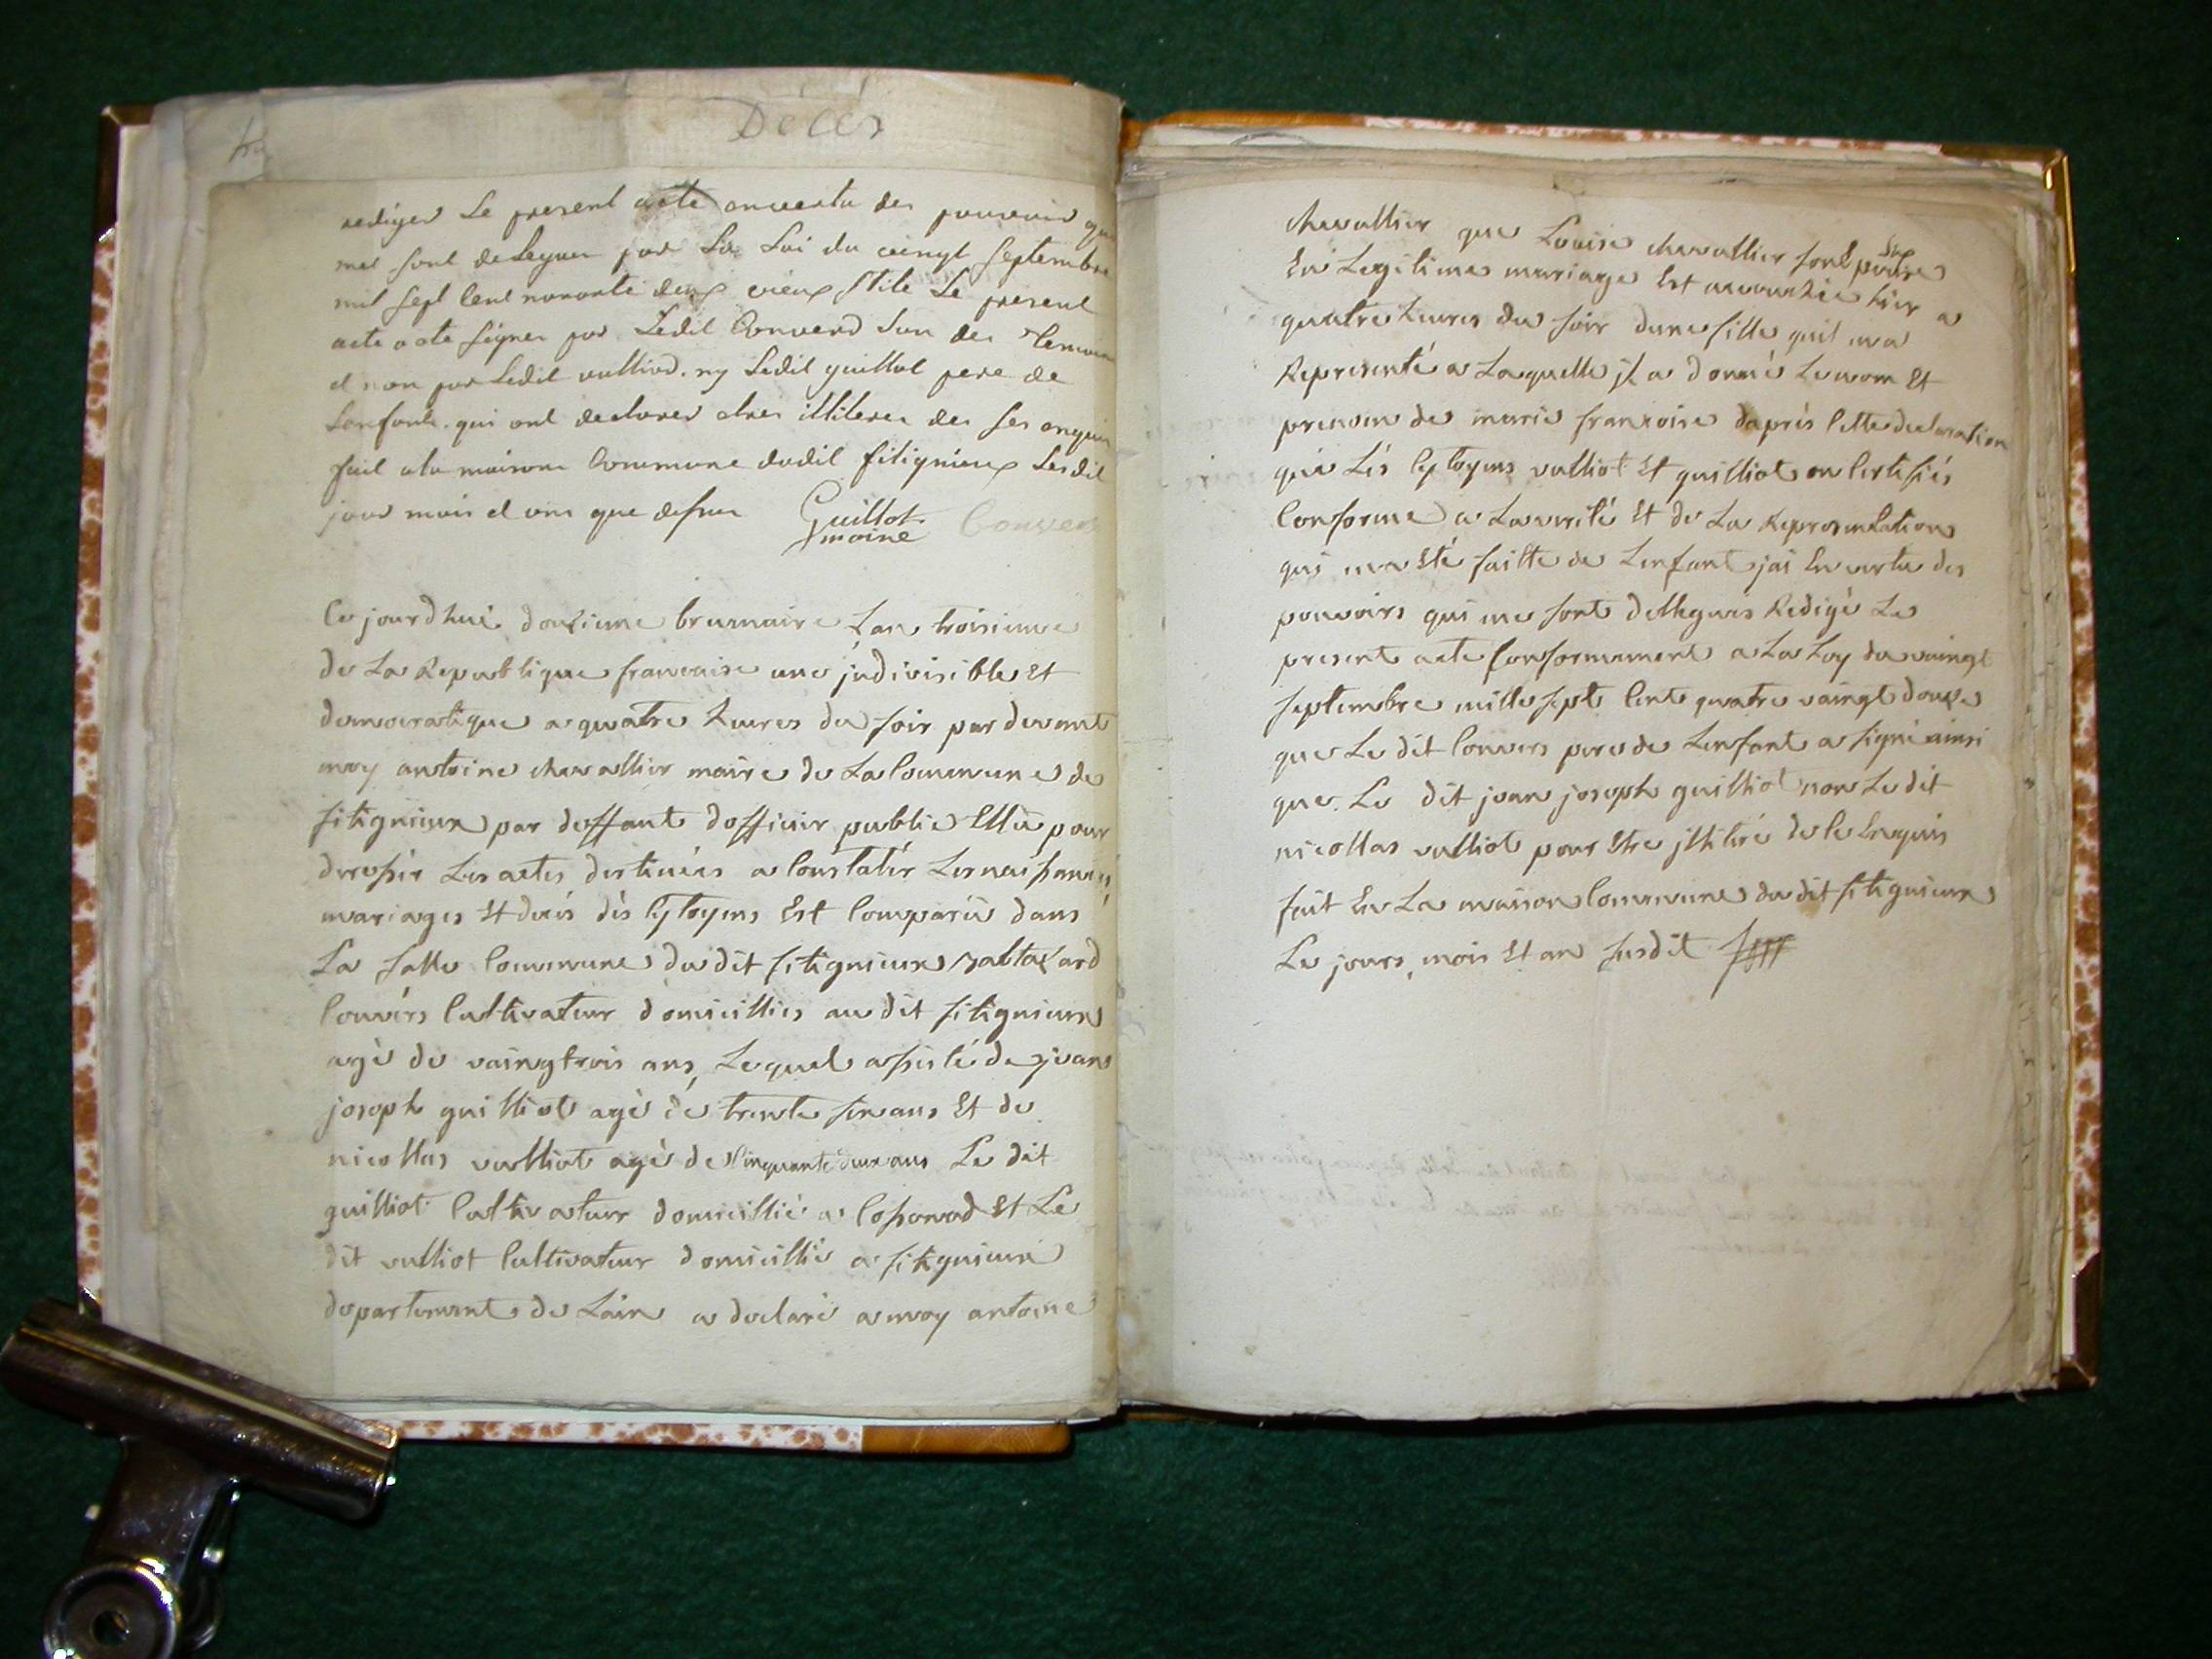 Décés
rediger Le present acte onvertu des pouvoirs
mes sont deleguer par La Loi du vingt septembre
mil sept Cent nonante deux vieux Stile Le present
acte a ete signer par Ledit Converd Lun des
et non par Ledit vulliod. ny Ledit guillot pere de
Lenfant. qui ont declarer etres illiterer des ses enquis
fait ala maison Commune dudit fitignieux Lesdit
jour mois et ans que desus Guillot Convers
moine
Ce jourdhué douzieme brumaire Lan troisieme
de La Republique francaise une jndivisible Et
democratique a quatre heures du soir par devant
moy antoine chevallier maire de La Commune de
fitignieux par deffaut dofficier public Ellu pour
dressér Les actes destinées a Constatér Les naissances,
mariages Et decés dés Cytoyens Est Comparu dans
La salle Commune du dit fitignieux baltazard
Convérs Cultivateur domicilliés au dit fitignieux
agé de vaingtrois ans, Lequel assisté de jean
joseph guilliot agé de trente six ans Et de
nicollas vulliot agé de Cinquante deux ans Le dit
guilliot Cultivateur domicillié a Cossonod Et Le
dit vulliot Cultivateur domicillié a fitignieux
departement de Lain a declaré a moy antoine
chevallier que Louise chevallier son Epouse
En Legitime mariage Est accouchée hier a
quatre heures du soir dune fille quil ma
Representé a Laquelle jl a donné Le nom Et
prenom de marie francoise daprés Cette declaration
que Lés Cytoyens vulliot Et guilliot on Certifiés
Conforme a La verité Et de La Representation
qui ma Eté faitte de Lenfant jai En vertu des
pouvoirs qui me sont dellegues Redigé Le
present acte Conformement a La Loy du vaingt
septembre mille sept Cent quatre vaingt douze
que Le dit Convers pere de Lenfant a signé ainsi
que Le dit jean joseph guilliot non Le dit
nicollas vulliot pour Etre jllitéré de Ce Enquis
fait En La maison Commune du dit fitignieux
Le jours, mois Et an susdit